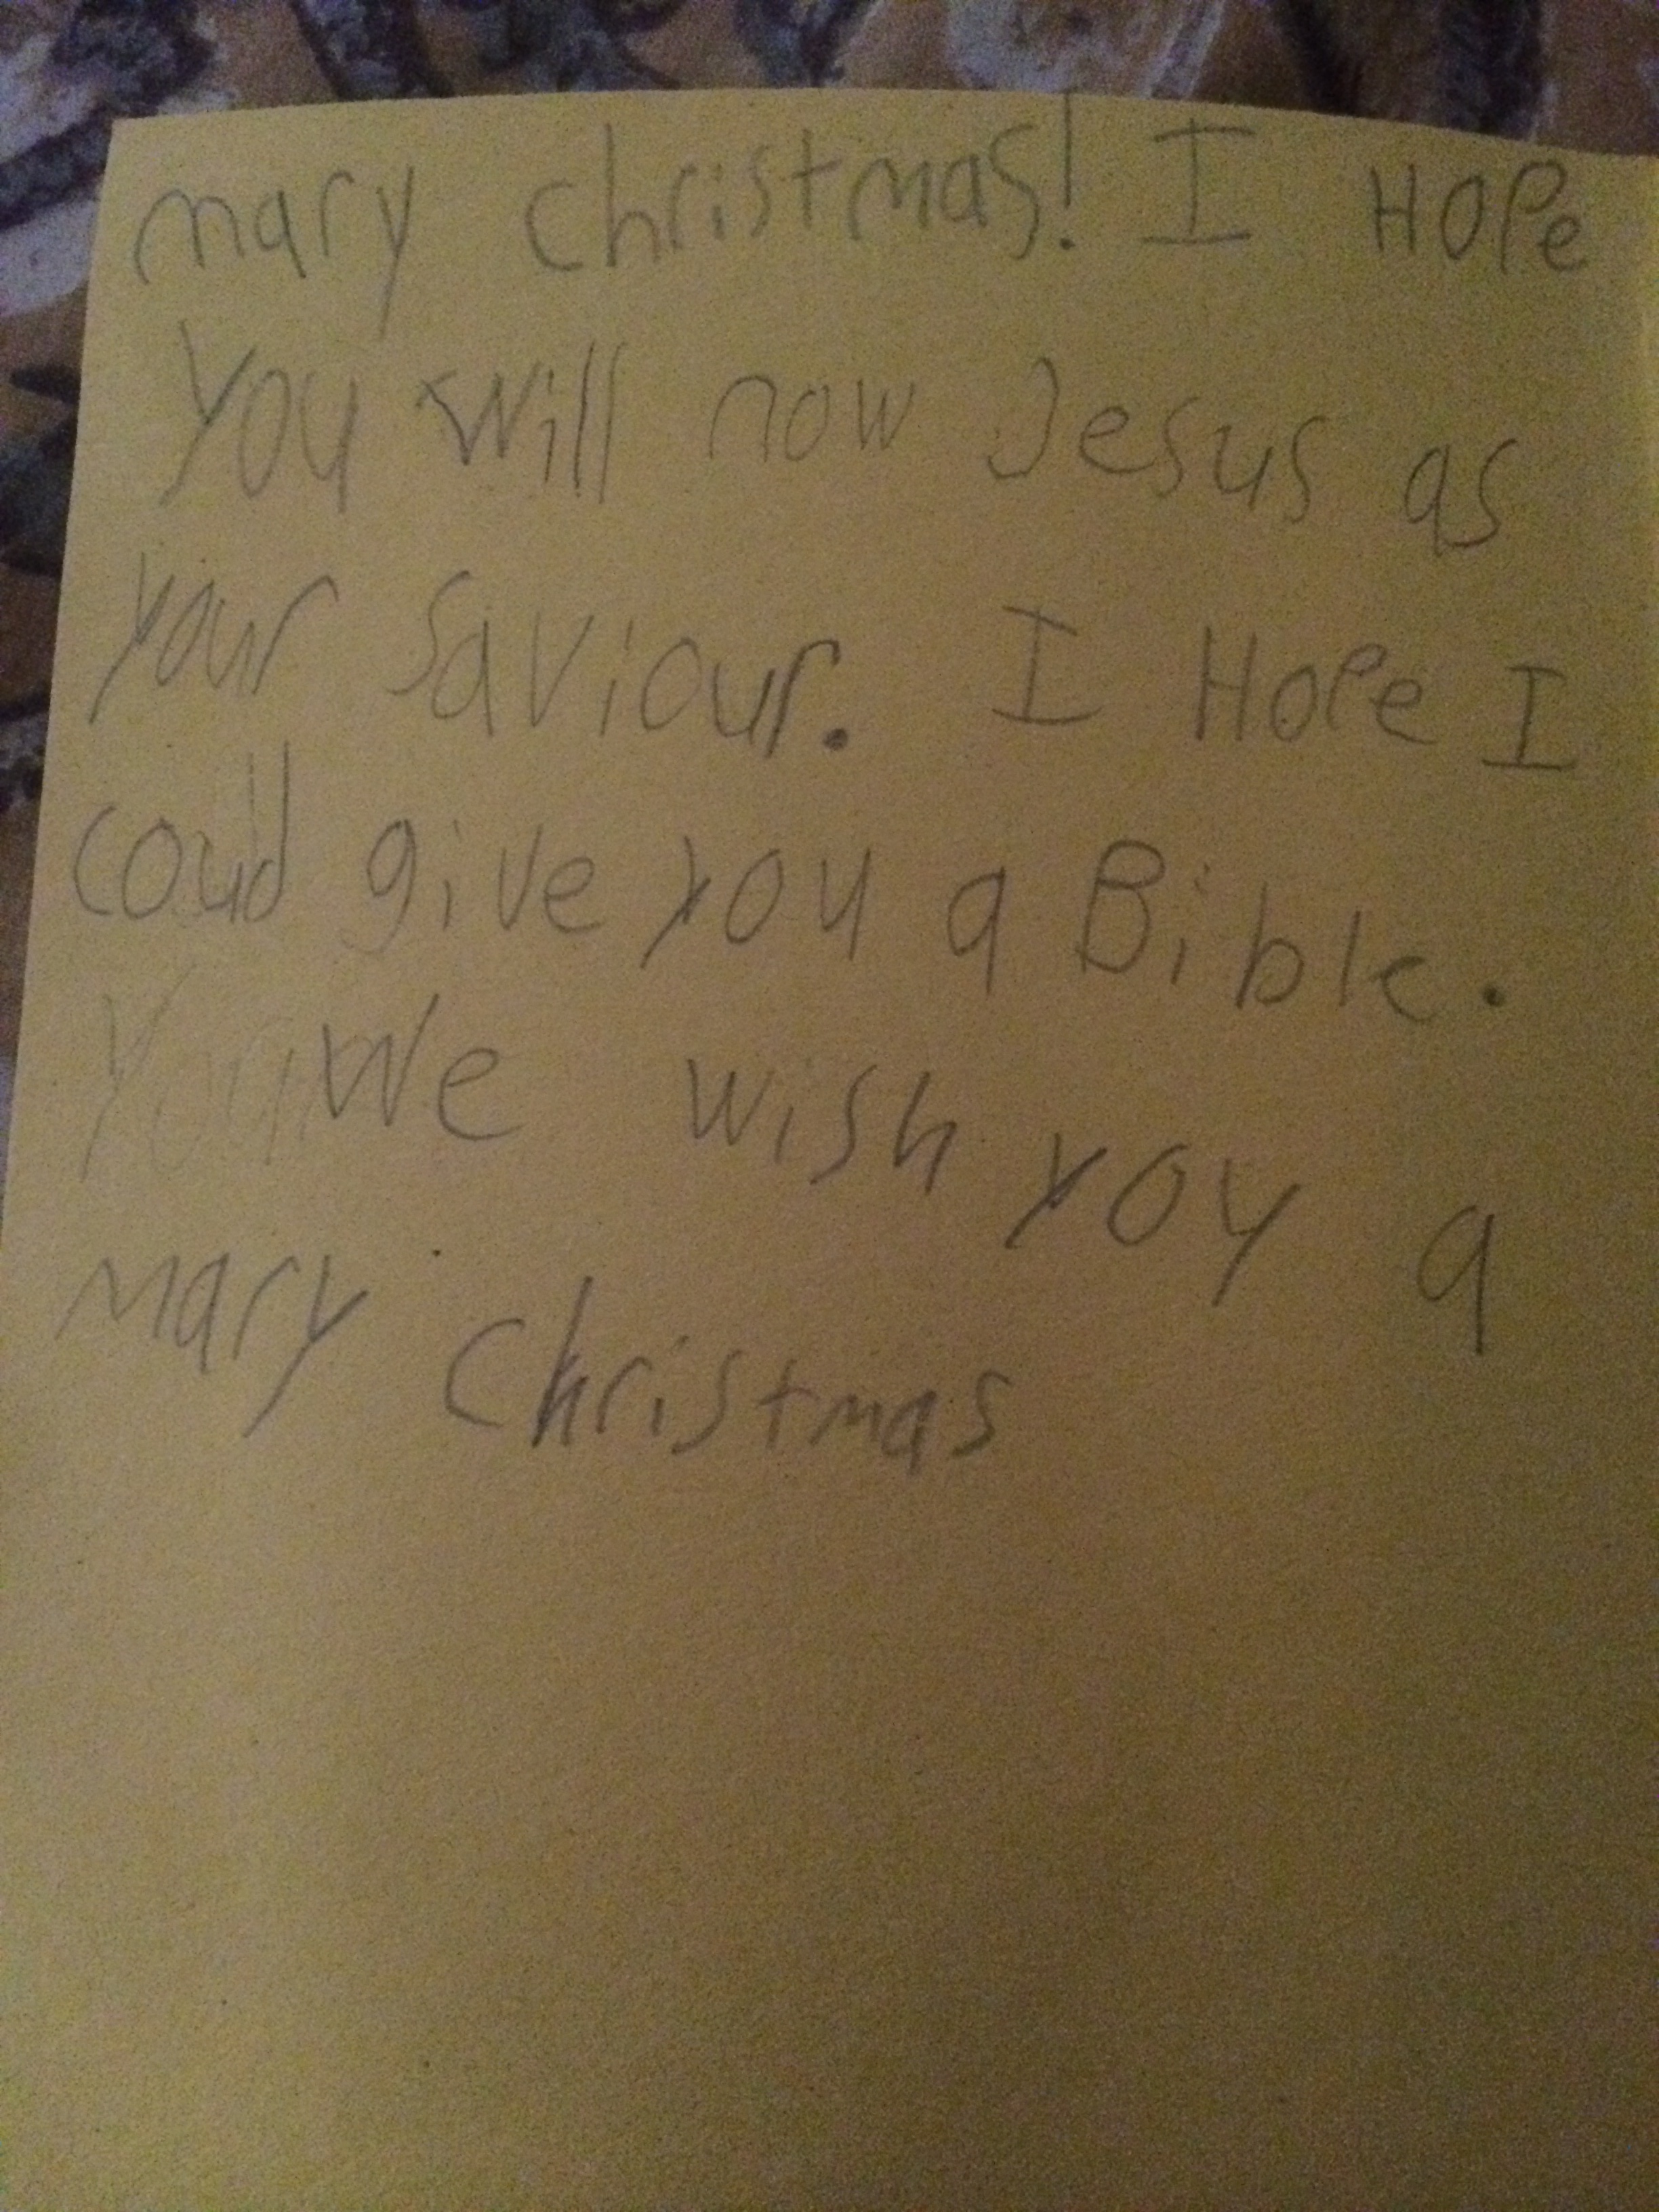 mary christmas! I Hope
You will now Jesus as
your Saviour. I Hope I
coud give you a Bible.
We wish you a
mary christmas